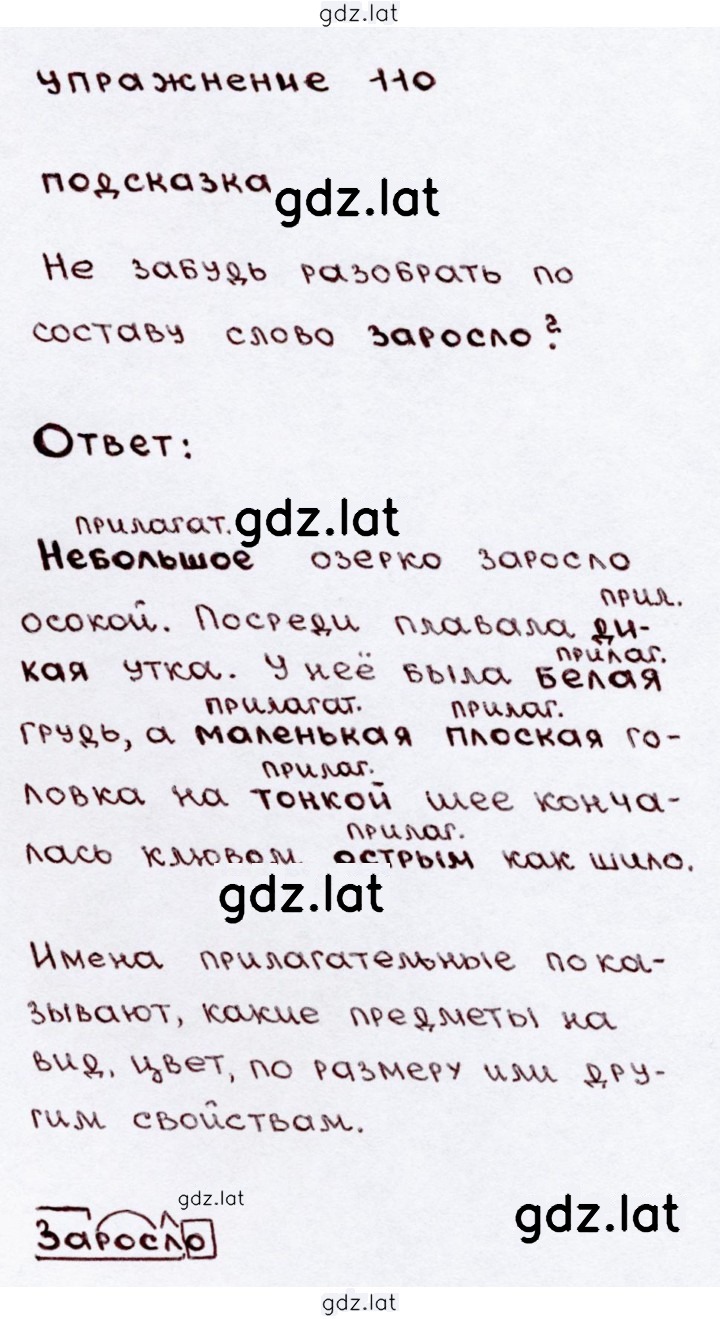 gdz.lat
упражнение 110
подсказка
gdz.lat
Не забудь разобрать по
составу слово заросло?
Ответ:
прилагат. gdz.lat
Небольшое озерко заросло
прил.
осокой. Посреди плавала ди-
прилаг.
кая утка. У неё была белая
прилагат. прилаг.
грудь, а маленькая плоская го-
прилаг.
ловка на тонкой шее конча-
прилаг.
лась клювом острым как шило.
gdz.lat
Имена прилагательные пока-
зывают, какие предметы на
вид, цвет, по размеру или дру-
гим свойствам.
gdz.lat
gdz.lat
Заросло
gdz.lat